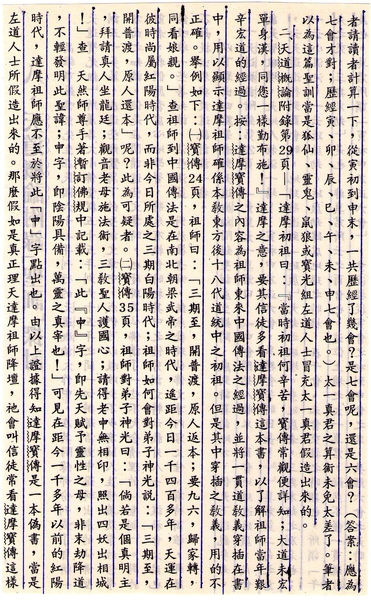 者請讀者計算一下，從寅初到申末，一共歷經了幾會？是七會呢，還是六會？（答案：應為
七會才對；歷經寅、卯、辰、巳、午、未、申七會也。）太一真君之算術未免太差了。筆者
以為這篇聖訓當是狐仙、靈鬼、鼠狼或寶光組左道人士冒充太一真君假造出來的。
二、天道概論附錄第29頁—「達摩初祖曰：『當時初祖何辛苦，寶傳常觀便詳知；大道未宏
單身漢，同您一樣勤布施！』達摩之意，要其信徒多看達摩寶傳這本書，以了解祖師當年艱
辛宏道的經過。按：達摩寶傳之內容為祖師東來中國傳法之經過，並將一貫道教義穿插在書
中，用以顯示達摩祖師確係本教東方後十八代道統中之初祖。但是其中穿插之教義，用的不
正確。舉例如下：㈠寶傳24頁，祖師曰：「三期至，開普渡，原人返本；要九六，歸家轉，
同看娘親。」查祖師到中國傳法是在南北朝梁武帝之時代，遙距今日一千四百多年，天運在
彼時尚屬紅陽時代，而非今日所處之三期白陽時代；祖師如何會對弟子神光說：「三期至，
開普渡，原人還本」呢？此為可疑者。㈡寶傳35頁，祖師對弟子神光曰：「倘若是個真明主
，拜請真人坐龍廷；觀音老母施法術，三教聖人護國心；請得老申無相印，照出四妖出相城
！」查 天然師尊手著暫訂佛規中記載：「此『申』字，即先天賦予靈性之母，非末劫降道
，不輕發明此聖諱；申字，即陰陽具備，萬靈之真宰也！」可見在距今一千多年以前的紅陽
時代，達摩祖師應不至於將此「申」字點出也。由以上證據得知達摩寶傳是一本偽書，當是
左道人士所假造出來的。那麼假如是真正理天達摩祖師降壇，祂會叫信徒常看達摩寶傳這樣